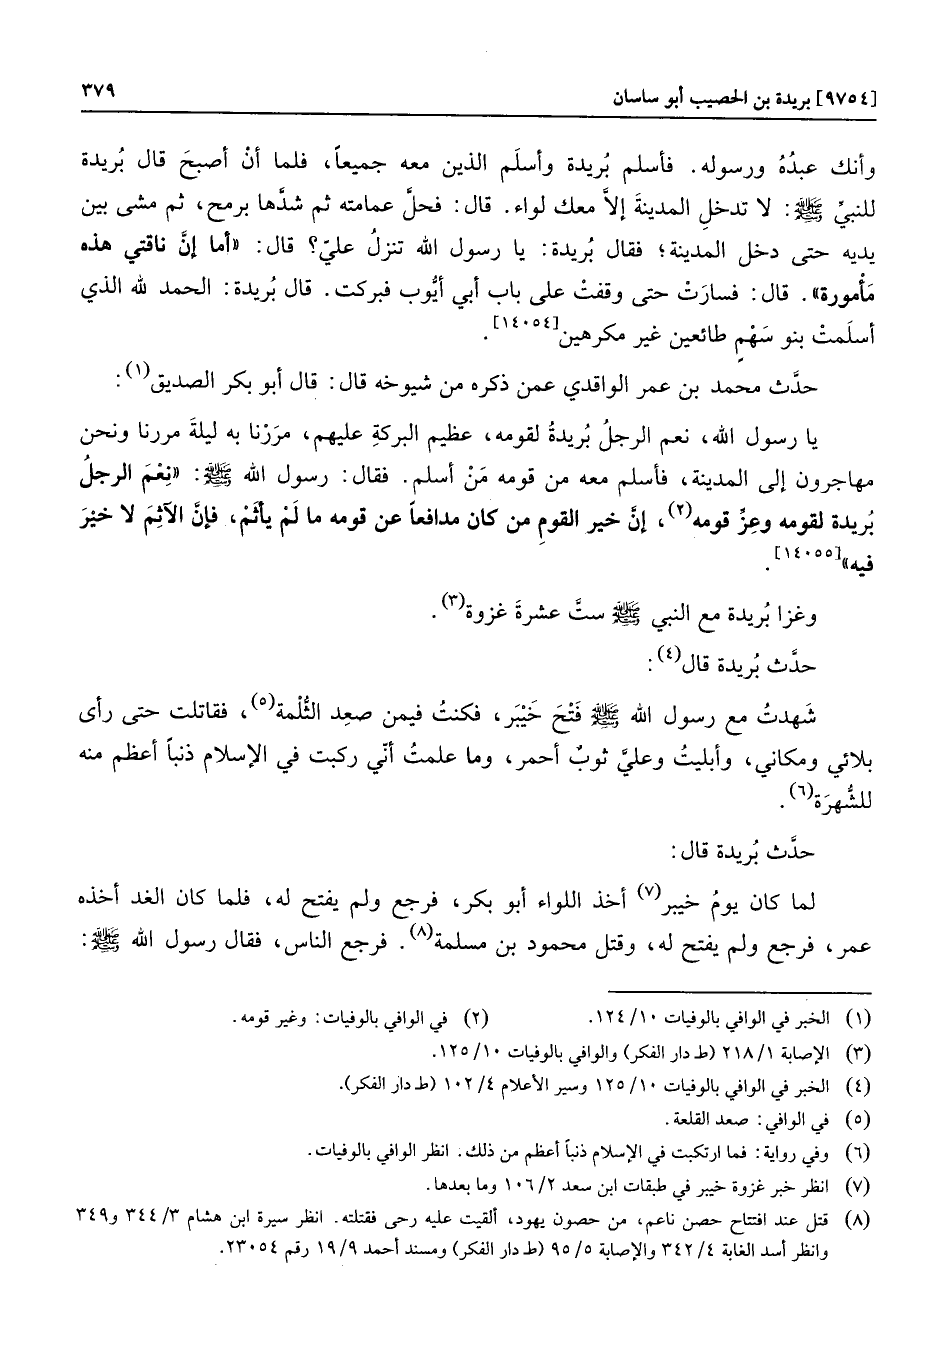 [٩٧٥٤] بريدة بن الحصيب أبو ساسان ٣٧٩
وأنك عبدُهُ ورسوله. فأسلم بُريدة وأسلَم الذين معه جميعاً، فلما أنْ أصبحَ قال بُريدة
للنبيِّ ﷺ: لا تدخلِ المدينةَ إلاَّ معك لواء. قال: فحلَّ عمامته ثم شدَّها برمح، ثم مشى بين
يديه حتى دخل المدينة؛ فقال بُريدة: يا رسول الله تنزلُ عليّ؟ قال: «أما إنَّ ناقتي هذه
مَأْمورة». قال: فسارَتْ حتى وقفتْ على باب أبي أيُّوب فبركت. قال بُريدة: الحمد لله الذي
أسلَمتْ بنو سَهْمٍ طائعين غير مكرهين[١٤٠٥٤].
حدَّث محمد بن عمر الواقدي عمن ذكره من شيوخه قال: قال أبو بكر الصديق(١):
يا رسول الله، نعم الرجلُ بُريدةُ لقومه، عظيم البركةِ عليهم، مرَرْنا به ليلةَ مررنا ونحن
مهاجرون إلى المدينة، فأسلم معه من قومه مَنْ أسلم. فقال: رسول الله ﷺ: «نِعْمَ الرجلُ
بُريدة لقومه وعِزِّ قومه(٢)، إنَّ خير القومِ من كان مدافعاً عن قومه ما لَمْ يأثَمْ، فإنَّ الآثِمَ لا خيْرَ
فيه»[١٤٠٥٥].
وغزا بُريدة مع النبي ﷺ ستَّ عشرةَ غزوة(٣).
حدَّث بُريدة قال(٤):
شَهدتُ مع رسول الله ﷺ فَتْحَ خَيْبَر، فكنتُ فيمن صعِد الثُّلْمة(٥)، فقاتلت حتى رأى
بلائي ومكاني، وأبليتُ وعليَّ ثوبٌ أحمر، وما علمتُ أنّي ركبت في الإسلام ذنباً أعظم منه
للشُّهرَة(٦).
حدَّث بُريدة قال:
لما كان يومُ خيبر(٧) أخذ اللواء أبو بكر، فرجع ولم يفتح له، فلما كان الغد أخذه
عمر، فرجع ولم يفتح له، وقتل محمود بن مسلمة(٨). فرجع الناس، فقال رسول الله ﷺ:
(١) الخبر في الوافي بالوفيات ١٠/١٢٤. (٢) في الوافي بالوفيات: وغير قومه.
(٣) الإصابة ١/٢١٨ (ط دار الفكر) والوافي بالوفيات ١٠/١٢٥.
(٤) الخبر في الوافي بالوفيات ١٠/١٢٥ وسير الأعلام ٤/١٠٢ (ط دار الفكر).
(٥) في الوافي: صعد القلعة.
(٦) وفي رواية: فما ارتكبت في الإسلام ذنباً أعظم من ذلك. انظر الوافي بالوفيات.
(٧) انظر خبر غزوة خيبر في طبقات ابن سعد ٢/١٠٦ وما بعدها.
(٨) قتل عند افتتاح حصن ناعم، من حصون يهود، ألقيت عليه رحى فقتلته. انظر سيرة ابن هشام ٣/٣٤٤ و٣٤٩
وانظر أسد الغابة ٤/٣٤٢ والإصابة ٥/٩٥ (ط دار الفكر) ومسند أحمد ٩/١٩ رقم ٢٣٠٥٤.